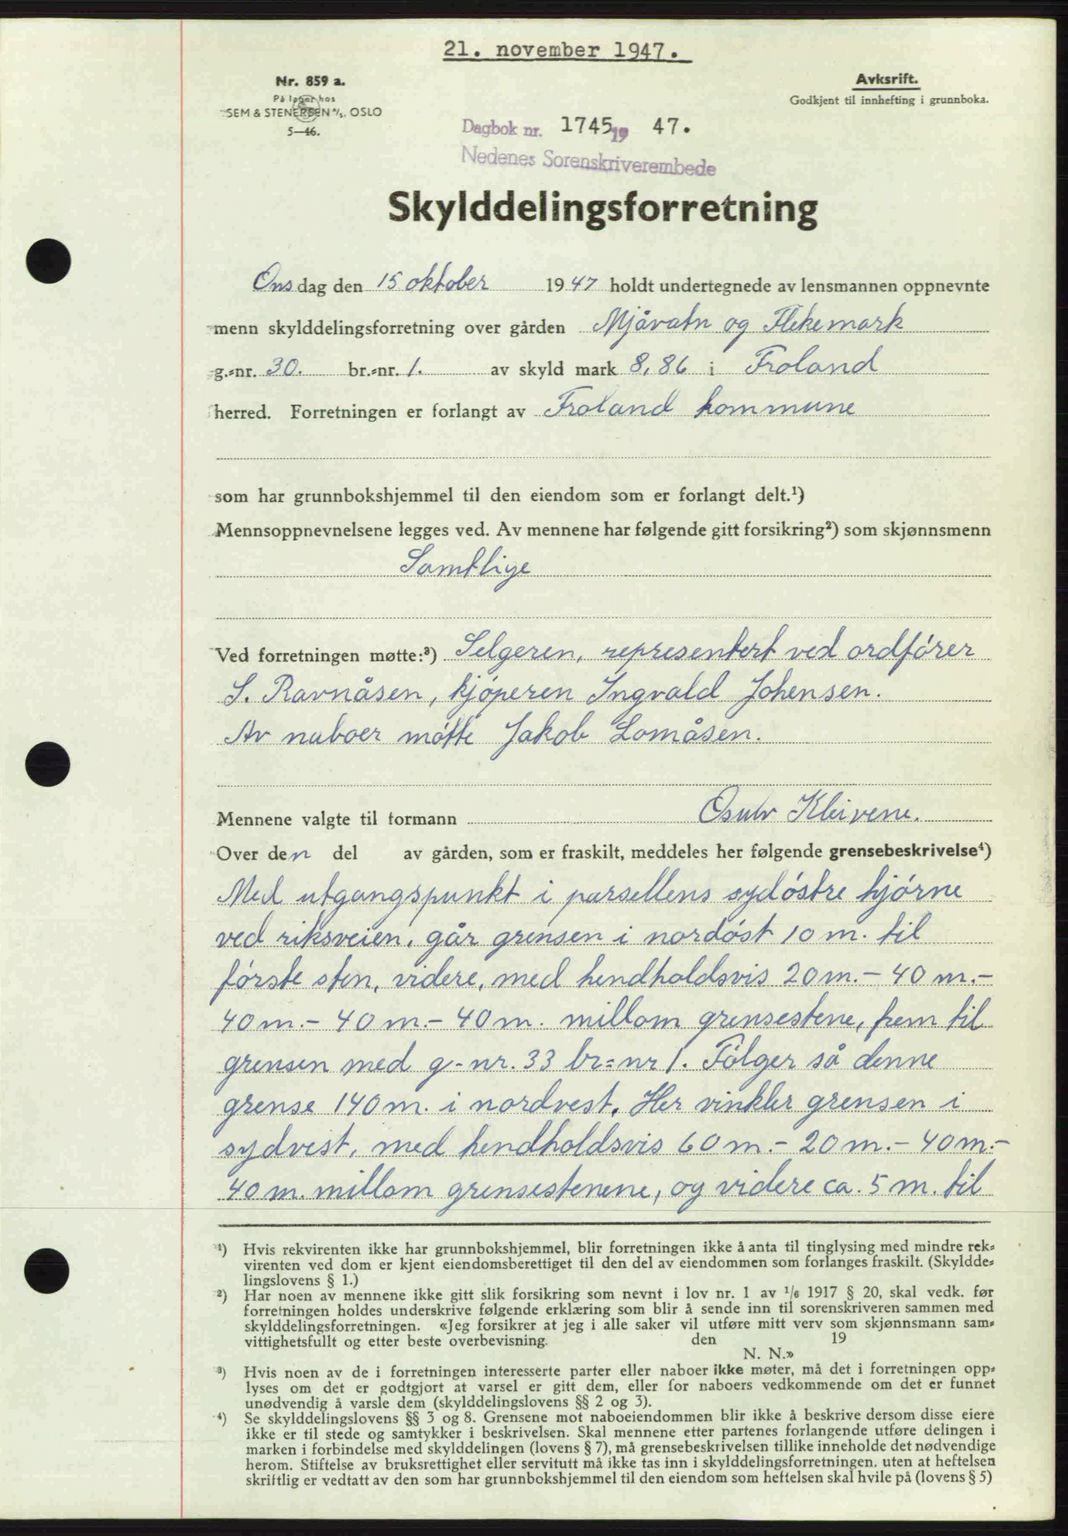 21. november 1947.
Nr. 859 a.
På lager hos
SEM & STENERSEN A/S. OSLO
5—46.
Avskrift.
Godkjent til innhefting i grunnboka.
Dagbok nr. 1745 19 47.
Nedenes Sorenskriverembede
Skylddelingsforretning
Onsdag den 15 oktober 1947 holdt undertegnede av lensmannen oppnevnte
menn skylddelingsforretning over gården Mjåvatn og Flekemark
g.-nr. 30. br.-nr. 1. av skyld mark 8,86 i Froland
herred. Forretningen er forlangt av Froland kommune
som har grunnbokshjemmel til den eiendom som er forlangt delt.¹)
Mennsoppnevnelsene legges ved. Av mennene har følgende gitt forsikring²) som skjønnsmenn
Samtlige
Ved forretningen møtte:³) Selgeren, representert ved ordfører
S. Ravnåsen, kjøperen Ingvald Johensen.
Av naboer møtte Jakob Lomåsen.
Mennene valgte til formann Osulv Kleivene.
Over den del av gården, som er fraskilt, meddeles her følgende grensebeskrivelse⁴)
Med utgangspunkt i parsellens sydøstre hjørne
ved riksveien, går grensen i nordøst 10 m. til
første sten, videre, med hendholdsvis 20 m. – 40 m. –
40 m. – 40 m. – 40 m. millom grensestene, frem til
grensen med g-nr. 33 br=nr 1. Følger så denne
grense 140 m. i nordvest. Her vinkler grensen i
sydvest, med hendholdsvis 60 m. – 20 m. – 40 m. –
40 m. millom grensestenene, og videre ca. 5 m. til
¹) Hvis rekvirenten ikke har grunnbokshjemmel, blir forretningen ikke å anta til tinglysing med mindre rek-
virenten ved dom er kjent eiendomsberettiget til den del av eiendommen som forlanges fraskilt. (Skyldde-
lingslovens § 1.)
²) Har noen av mennene ikke gitt slik forsikring som nevnt i lov nr. 1 av 1/6 1917 § 20, skal vedk. før
forretningen holdes underskrive følgende erklæring som blir å sende inn til sorenskriveren sammen med
skylddelingsforretningen. «Jeg forsikrer at jeg i alle saker vil utføre mitt verv som skjønnsmann sam-
vittighetsfullt og etter beste overbevisning. den 19
N. N.»
³) Hvis noen av de i forretningen interesserte parter eller naboer ikke møter, må det i forretningen opp-
lyses om det er godtgjort at varsel er gitt dem, eller for naboers vedkommende om det er funnet
unødvendig å varsle dem (skylddelingslovens §§ 2 og 3).
⁴) Se skylddelingslovens §§ 3 og 8. Grensene mot naboeiendommen blir ikke å beskrive dersom disse eiere
ikke er til stede og samtykker i beskrivelsen. Skal mennene etter partenes forlangende utføre delingen i
marken i forbindelse med skylddelingen (lovens § 7), må grensebeskrivelsen tillike inneholde det nødvendige
herom. Stiftelse av bruksrettighet eller servitutt må ikke tas inn i skylddelingsforretningen, uten at heftelsen
skriftlig er vedtatt av den som har grunnbokshjemmel til den eiendom som heftelsen skal hvile på (lovens § 5)